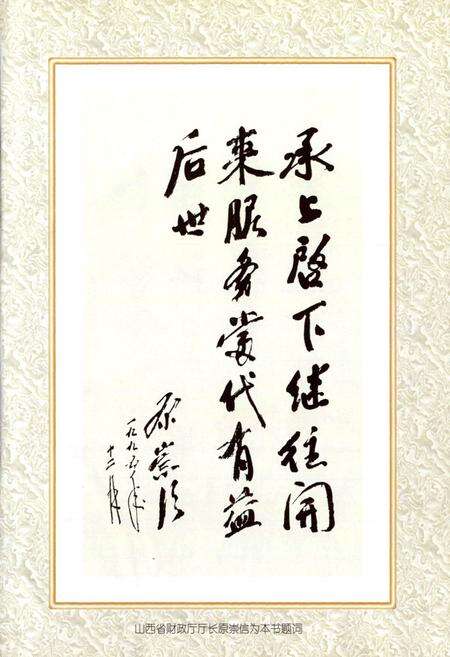 承上启下继往开
来服务当代有益
后世
原崇信
一九九六年
十二月
山西省财政厅厅长原崇信为本书题词